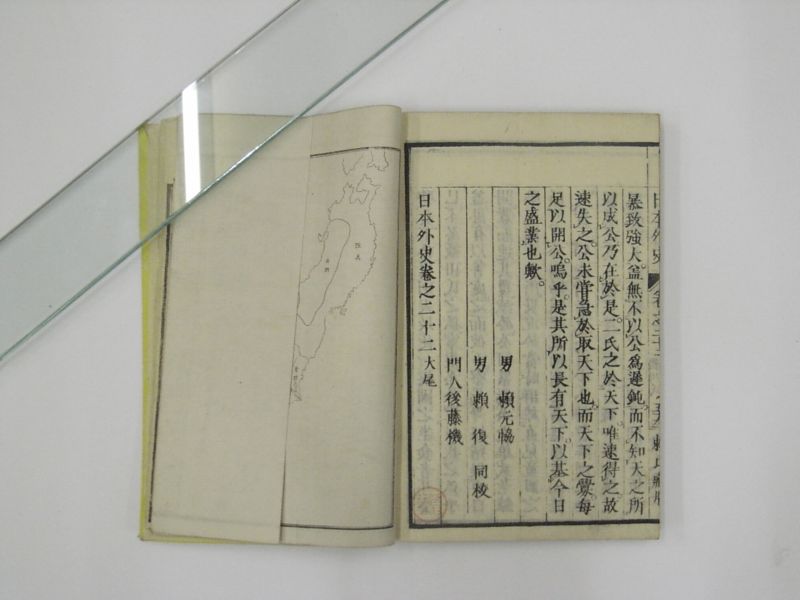 日本外史
暴致強大。盆無不以公爲遲鈍。而不知天之所
以成公乃在於是。二氏之於天下。唯速得之。故
速失之。公未嘗急於取天下也。而天下之釁。每
足以開公。嗚乎。是其所以長有天下。以基今日
之盛業也歟。
男 賴元協
男 賴復 同校
門人後藤機
日本外史卷之二十二大尾